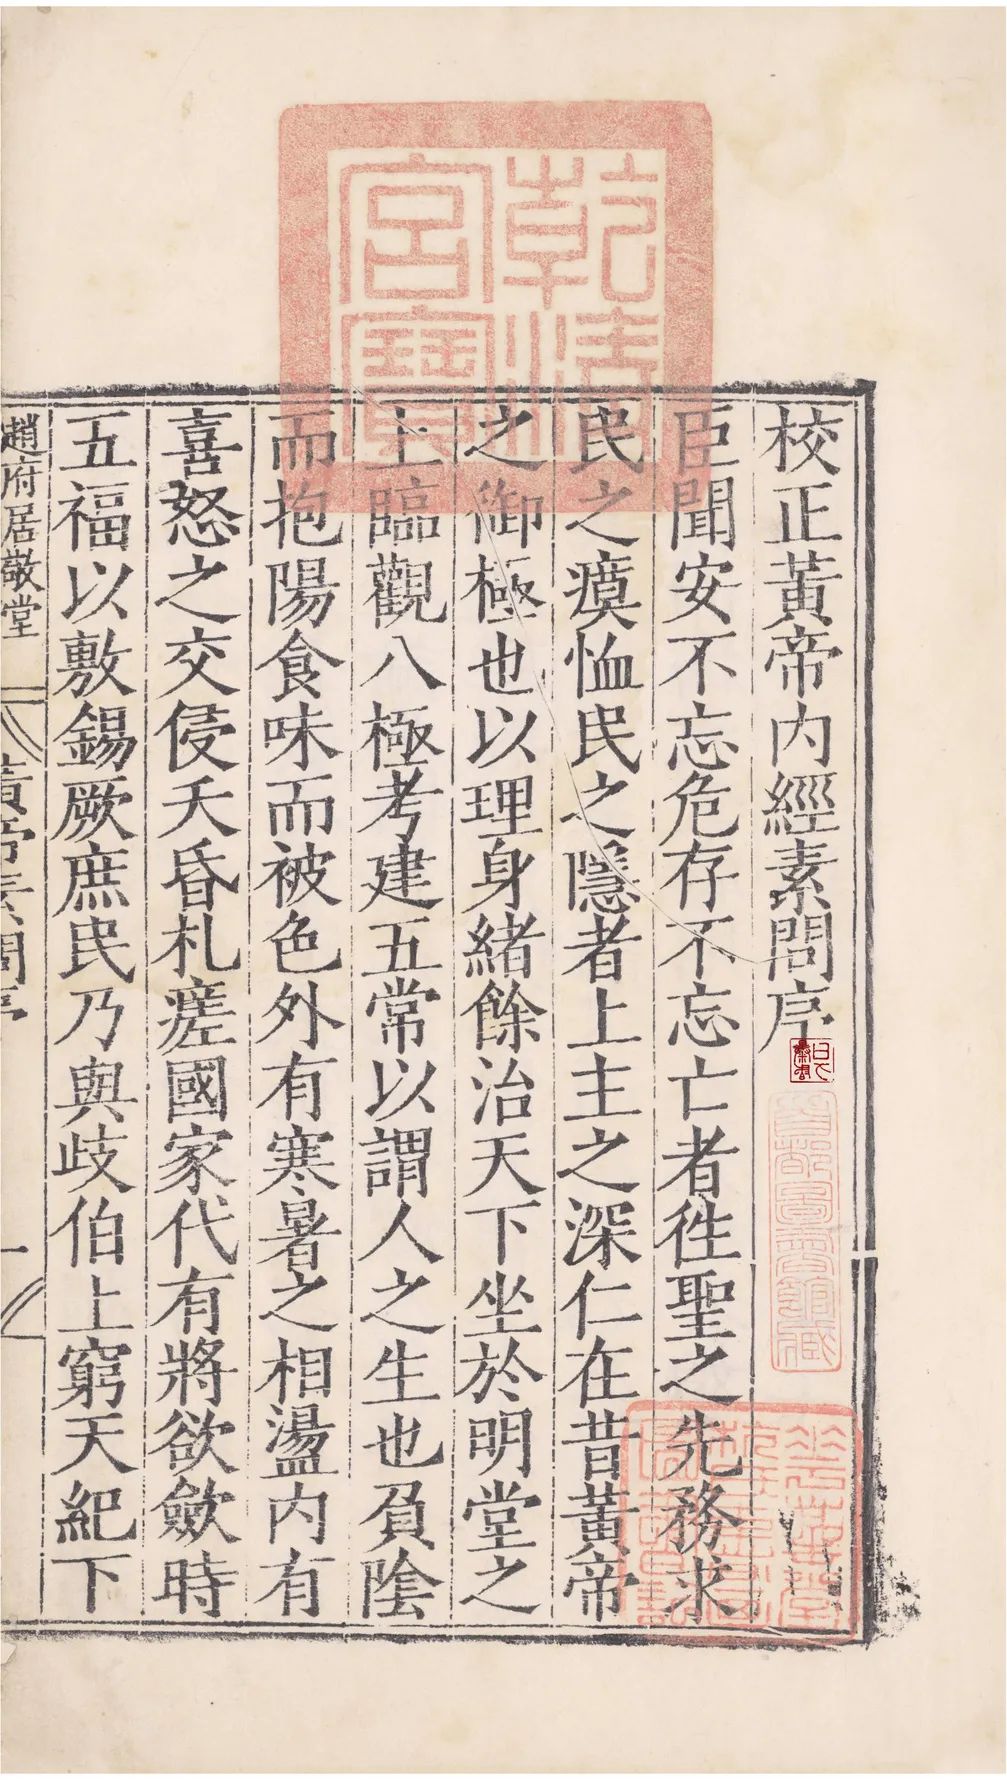 校正黃帝内經素問序
臣聞安不忘危存不忘亡者徃聖之先務求
民之瘼恤民之隱者上主之深仁在昔黃帝
之御極也以理身緒餘治天下坐於明堂之
上臨觀八極考建五常以謂人之生也負陰
而抱陽食味而被色外有寒暑之相盪内有
喜怒之交侵夭昏札瘥國家代有將欲斂時
五福以敷錫厥庶民乃與歧伯上窮天紀下
趙府居敬堂
黃帝素問序
一
乾清宮寶
首都圖書館藏